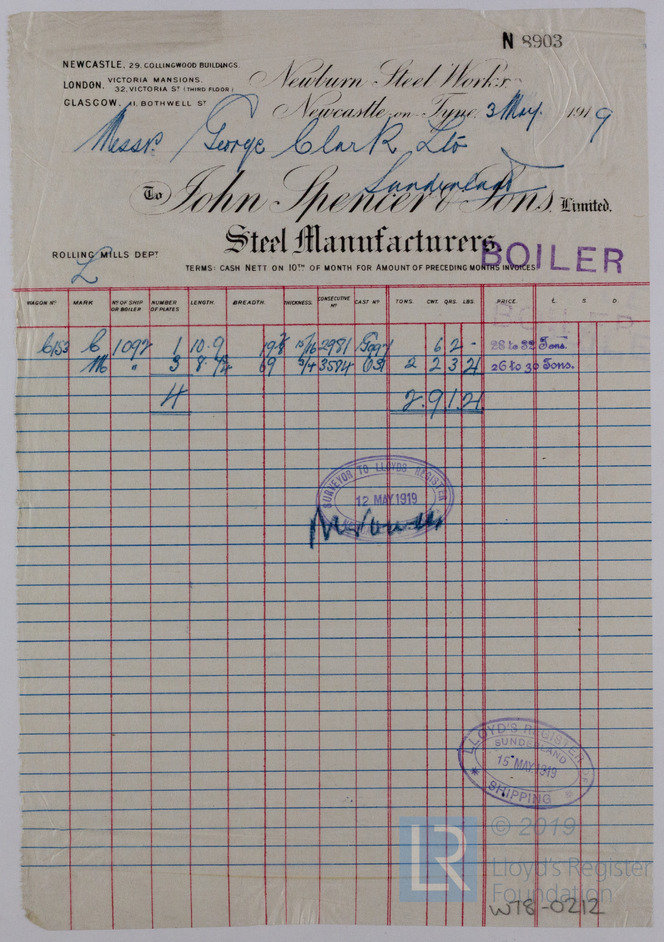 N 8903
NEWCASTLE. 29, COLLINGWOOD BUILDINGS.
LONDON. VICTORIA MANSIONS.
32, VICTORIA ST (THIRD FLOOR)
GLASGOW. 41, BOTHWELL ST
Newburn Steel Works.
Newcastle-on-Tyne, 3 May. 1919
Messrs. George Clark Ltd
Sunderland
To John Spencer & Sons, Limited.
Steel Manufacturers.
ROLLING MILLS DEPT
BOILER
TERMS: CASH NETT ON 10TH OF MONTH FOR AMOUNT OF PRECEDING MONTHS INVOICES
WAGON No MARK No OF SHIP OR BOILER NUMBER OF PLATES LENGTH. BREADTH. THICKNESS. CONSECUTIVE No CAST No TONS. CWT. QRS. LBS. PRICE. £. S. D.
BOILER
C 1092 1 10.9 15/16 2981 6 2 - 28 to 32 Tons.
" 3 69 3/4 3584 2 2 3 21 26 to 30 Tons.
4 2.9.1.21
SURVEYOR TO LLOYDS REGISTER
12 MAY 1919
LLOYD'S REGISTER OF
SUNDERLAND
15 MAY 1919
SHIPPING
LR
© 2019
Lloyd's Register
Foundation
WT8-0212